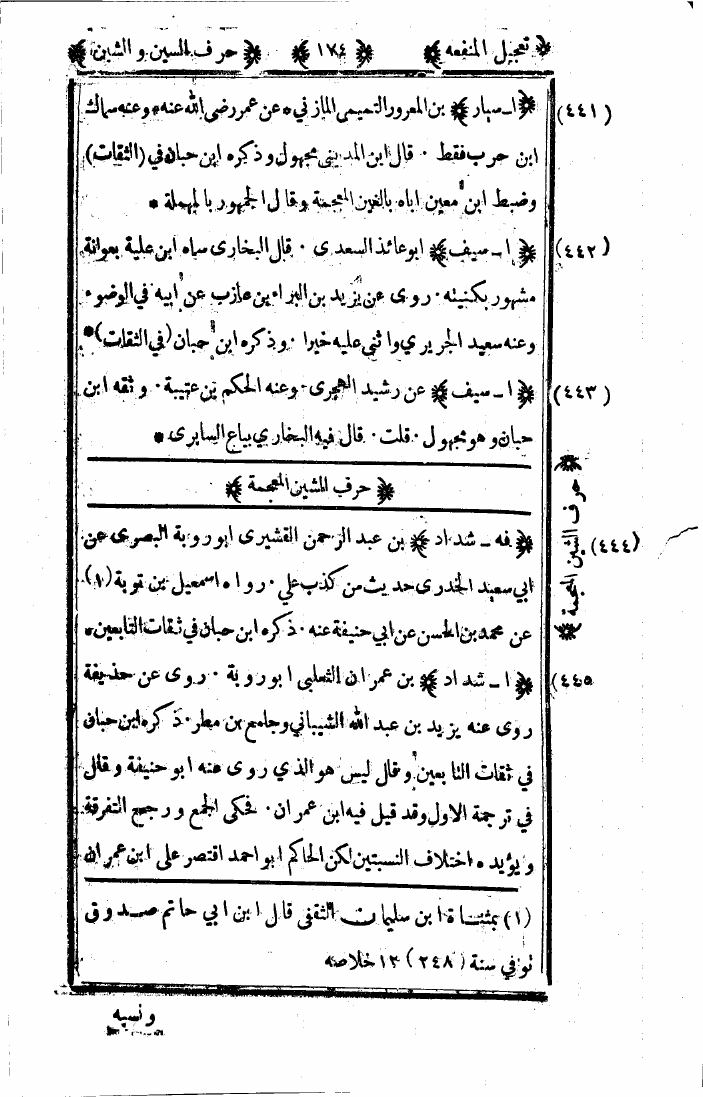 ﴿ تعجيل المنفعه ﴾ ﴿ ١٧٤ ﴾ ﴿ حرف السين و الشين ﴾
(٤٤١) ﴿ ا - سيار ﴾ بن المعرور التميمى المازني * عن عمر رضى الله عنه * وعنه سماك
ابن حرب فقط ٠ قال ابن المدينى مجهول وذكره ابن حبان في (الثقات)
وضبط ابن معين اباه بالغين المعجمة وقال الجمهور بالمهملة *
(٤٤٢) ﴿ ا - سيف ﴾ ابو عائذ السعدى ٠ قال البخارى سماه ابن علية بعوانة
مشهور بكنيته ٠ روى عن يزيد بن البراء بن عازب عن ابيه في الوضوء
وعنه سعيد الجريري واثنى عليه خيرا ٠ وذكره ابن حبان (في الثقات) *
(٤٤٣) ﴿ ا - سيف ﴾ عن رشيد الهجرى ٠ وعنه الحكم بن عتيبة ٠ وثقه ابن
حبان وهو مجهول ٠ قلت ٠ قال فيه البخاري بياع السابرى *
﴿ حرف الشين المعجمة ﴾
﴿ حرف الشين المعجمة ﴾
(٤٤٤) ﴿ فه - شداد ﴾ بن عبد الرحمن القشيرى ابو روبة البصرى عن
ابي سعيد الخدرى حديث من كذب علي ٠ رواه اسمعيل بن توبة (١)
عن محمد بن الحسن عن ابي حنيفة عنه ٠ ذكره ابن حبان في ثقات التابعين *
(٤٤٥) ﴿ ا - شداد ﴾ بن عمران الثعلبى ابو روبة ٠ روى عن حذيفة
روى عنه يزيد بن عبد الله الشيباني وجامع بن مطر ٠ ذكره ابن حبان
في ثقات التابعين وقال ليس هو الذي روى عنه ابو حنيفة وقال
في ترجمة الاول وقد قيل فيه ابن عمران ٠ فحكى الجمع ورجح التفرقة
ويؤيده اختلاف النسبتين لكن الحاكم ابو احمد اقتصر على ابن عمران
(١) بمثناة ابن سليمان الثقفى قال ابن ابي حاتم صدوق
توفي سنة (٢٤٨) ١٢ خلاصه
ونسبه